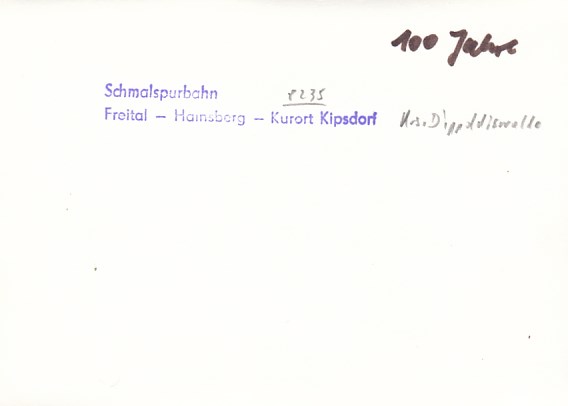 100 Jahre
Schmalspurbahn 8235
Freital – Hainsberg – Kurort Kipsdorf Krs. Dippoldiswalde